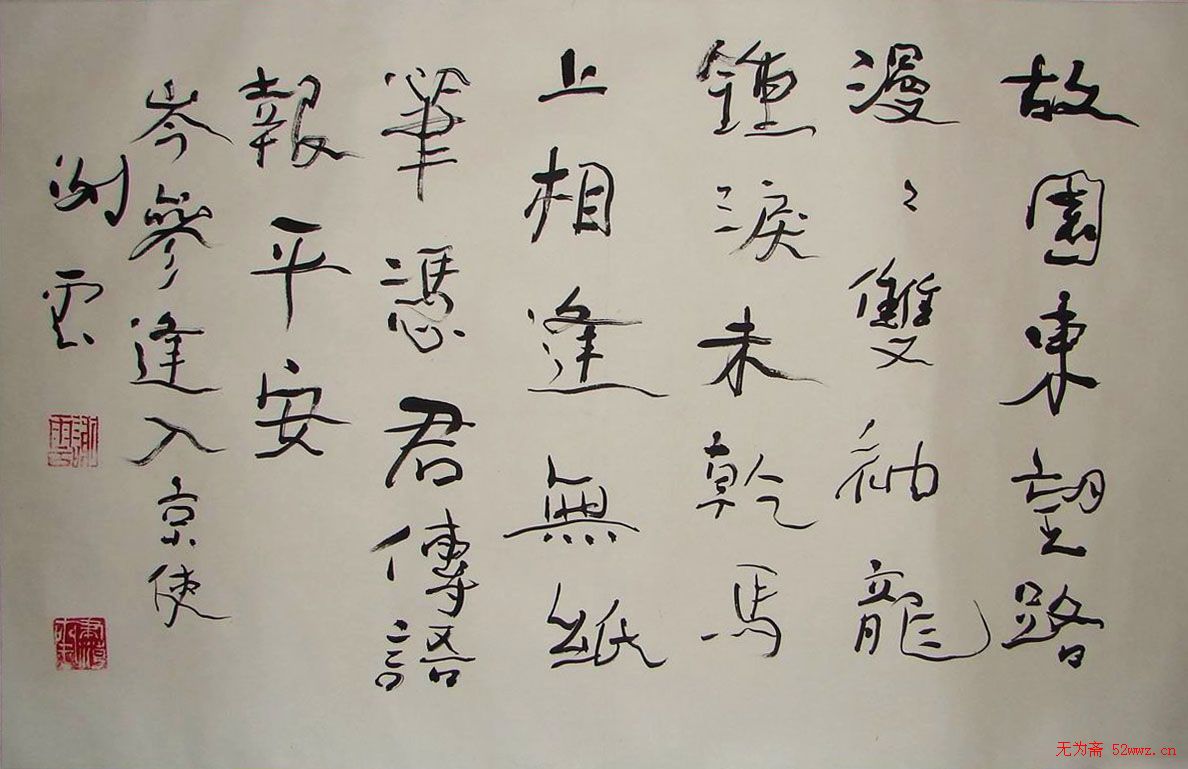 故園東望路
漫〻雙袖龍
鍾淚未乾馬
上相逢無紙
筆憑君傳語
報平安
岑參逢入京使
謝雲
无为斋 52wwz.cn